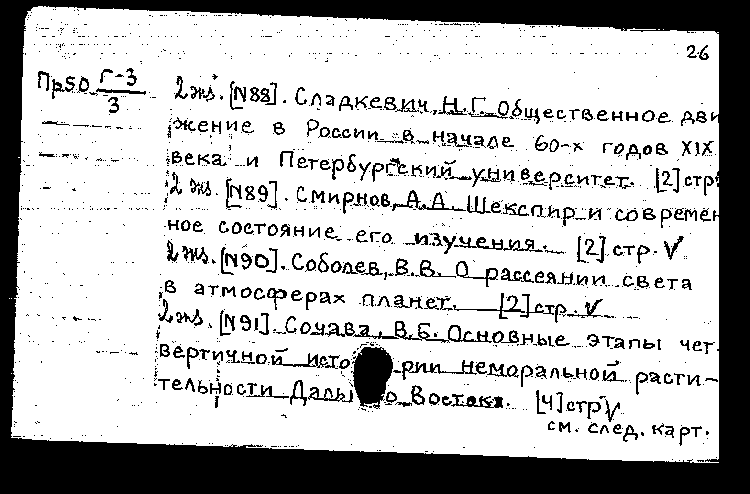 26
Пр50 Г-3
3
2 экз. [N88]. Сладкевич, Н.Г. Общественное дви
жение в России в начале 60-х годов XIX
века и Петербургский университет. [2] стр
2 экз. [N89]. Смирнов, А.А. Шекспир и современ
ное состояние его изучения. [2] стр. V
2 экз. [N90]. Соболев, В.В. О рассеянии света
в атмосферах планет. [2] стр. V
2 экз. [N91]. Сочава, В.Б. Основные этапы чет
вертичной исто рии неморальной расти-
тельности Даль о Востока. [4] стр V
см. след. карт.